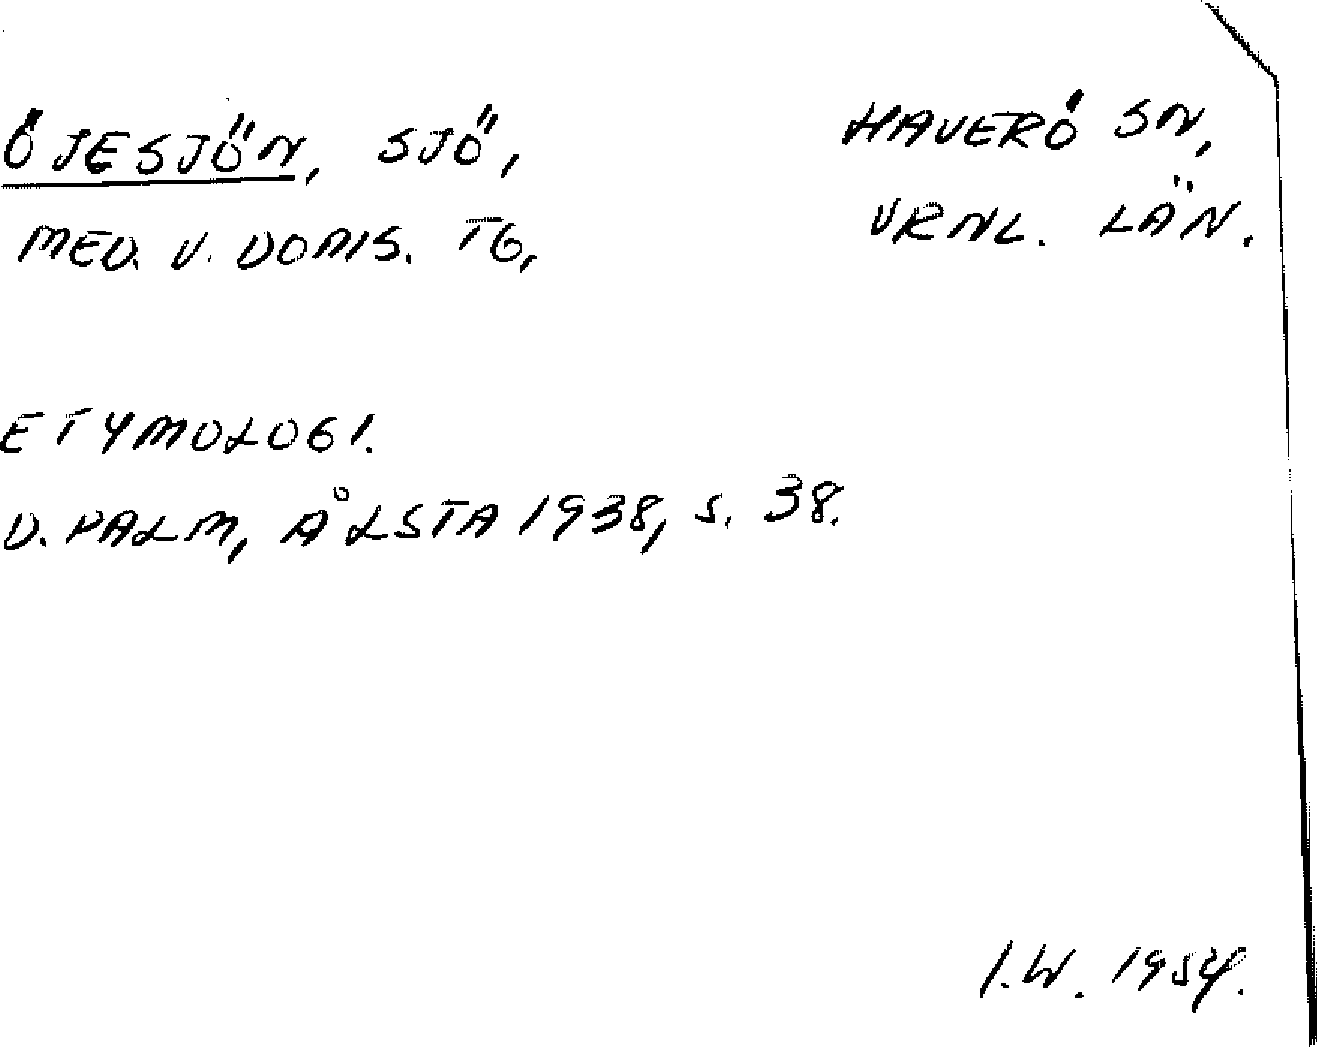 ÖJESJÖN, SJÖ,
HAVERÖ SN,
MED. V. DOMS. TG,
VRNL. LÄN.
ETYMOLOGI.
D. PALM, ÅLSTA 1938, S. 38.
I.W. 1954.